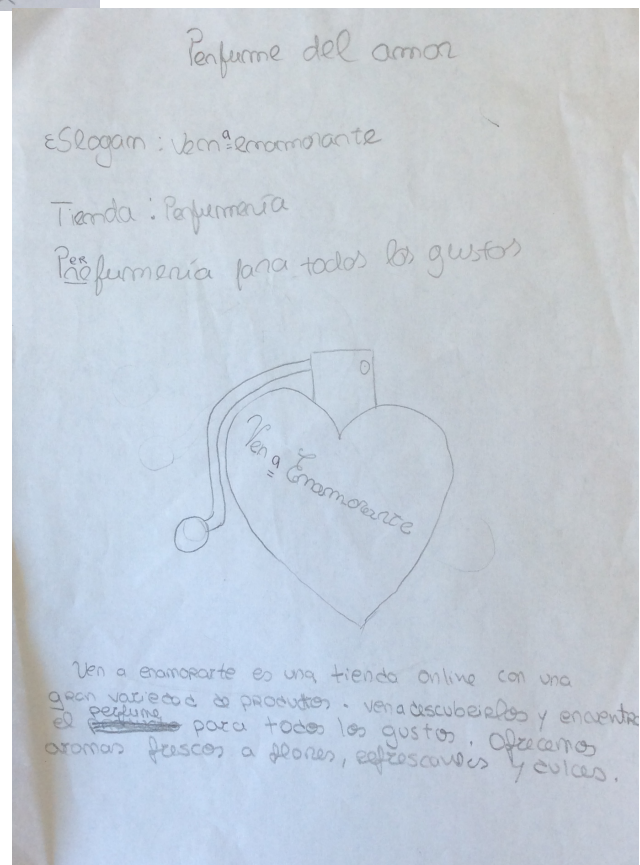 Perfume del amor
Eslogam: Ven a enamorarte
Tienda: Perfumería
Perfumería para todos los gustos
Ven a Enamorarte
Ven a enamorarte es una tienda online con una
gran variedad de produtos. ven a descubrirlos y encuentra
el perfume para todos los gustos. Ofrecemos
aromas frescos a flores, refrescantes y dulces.